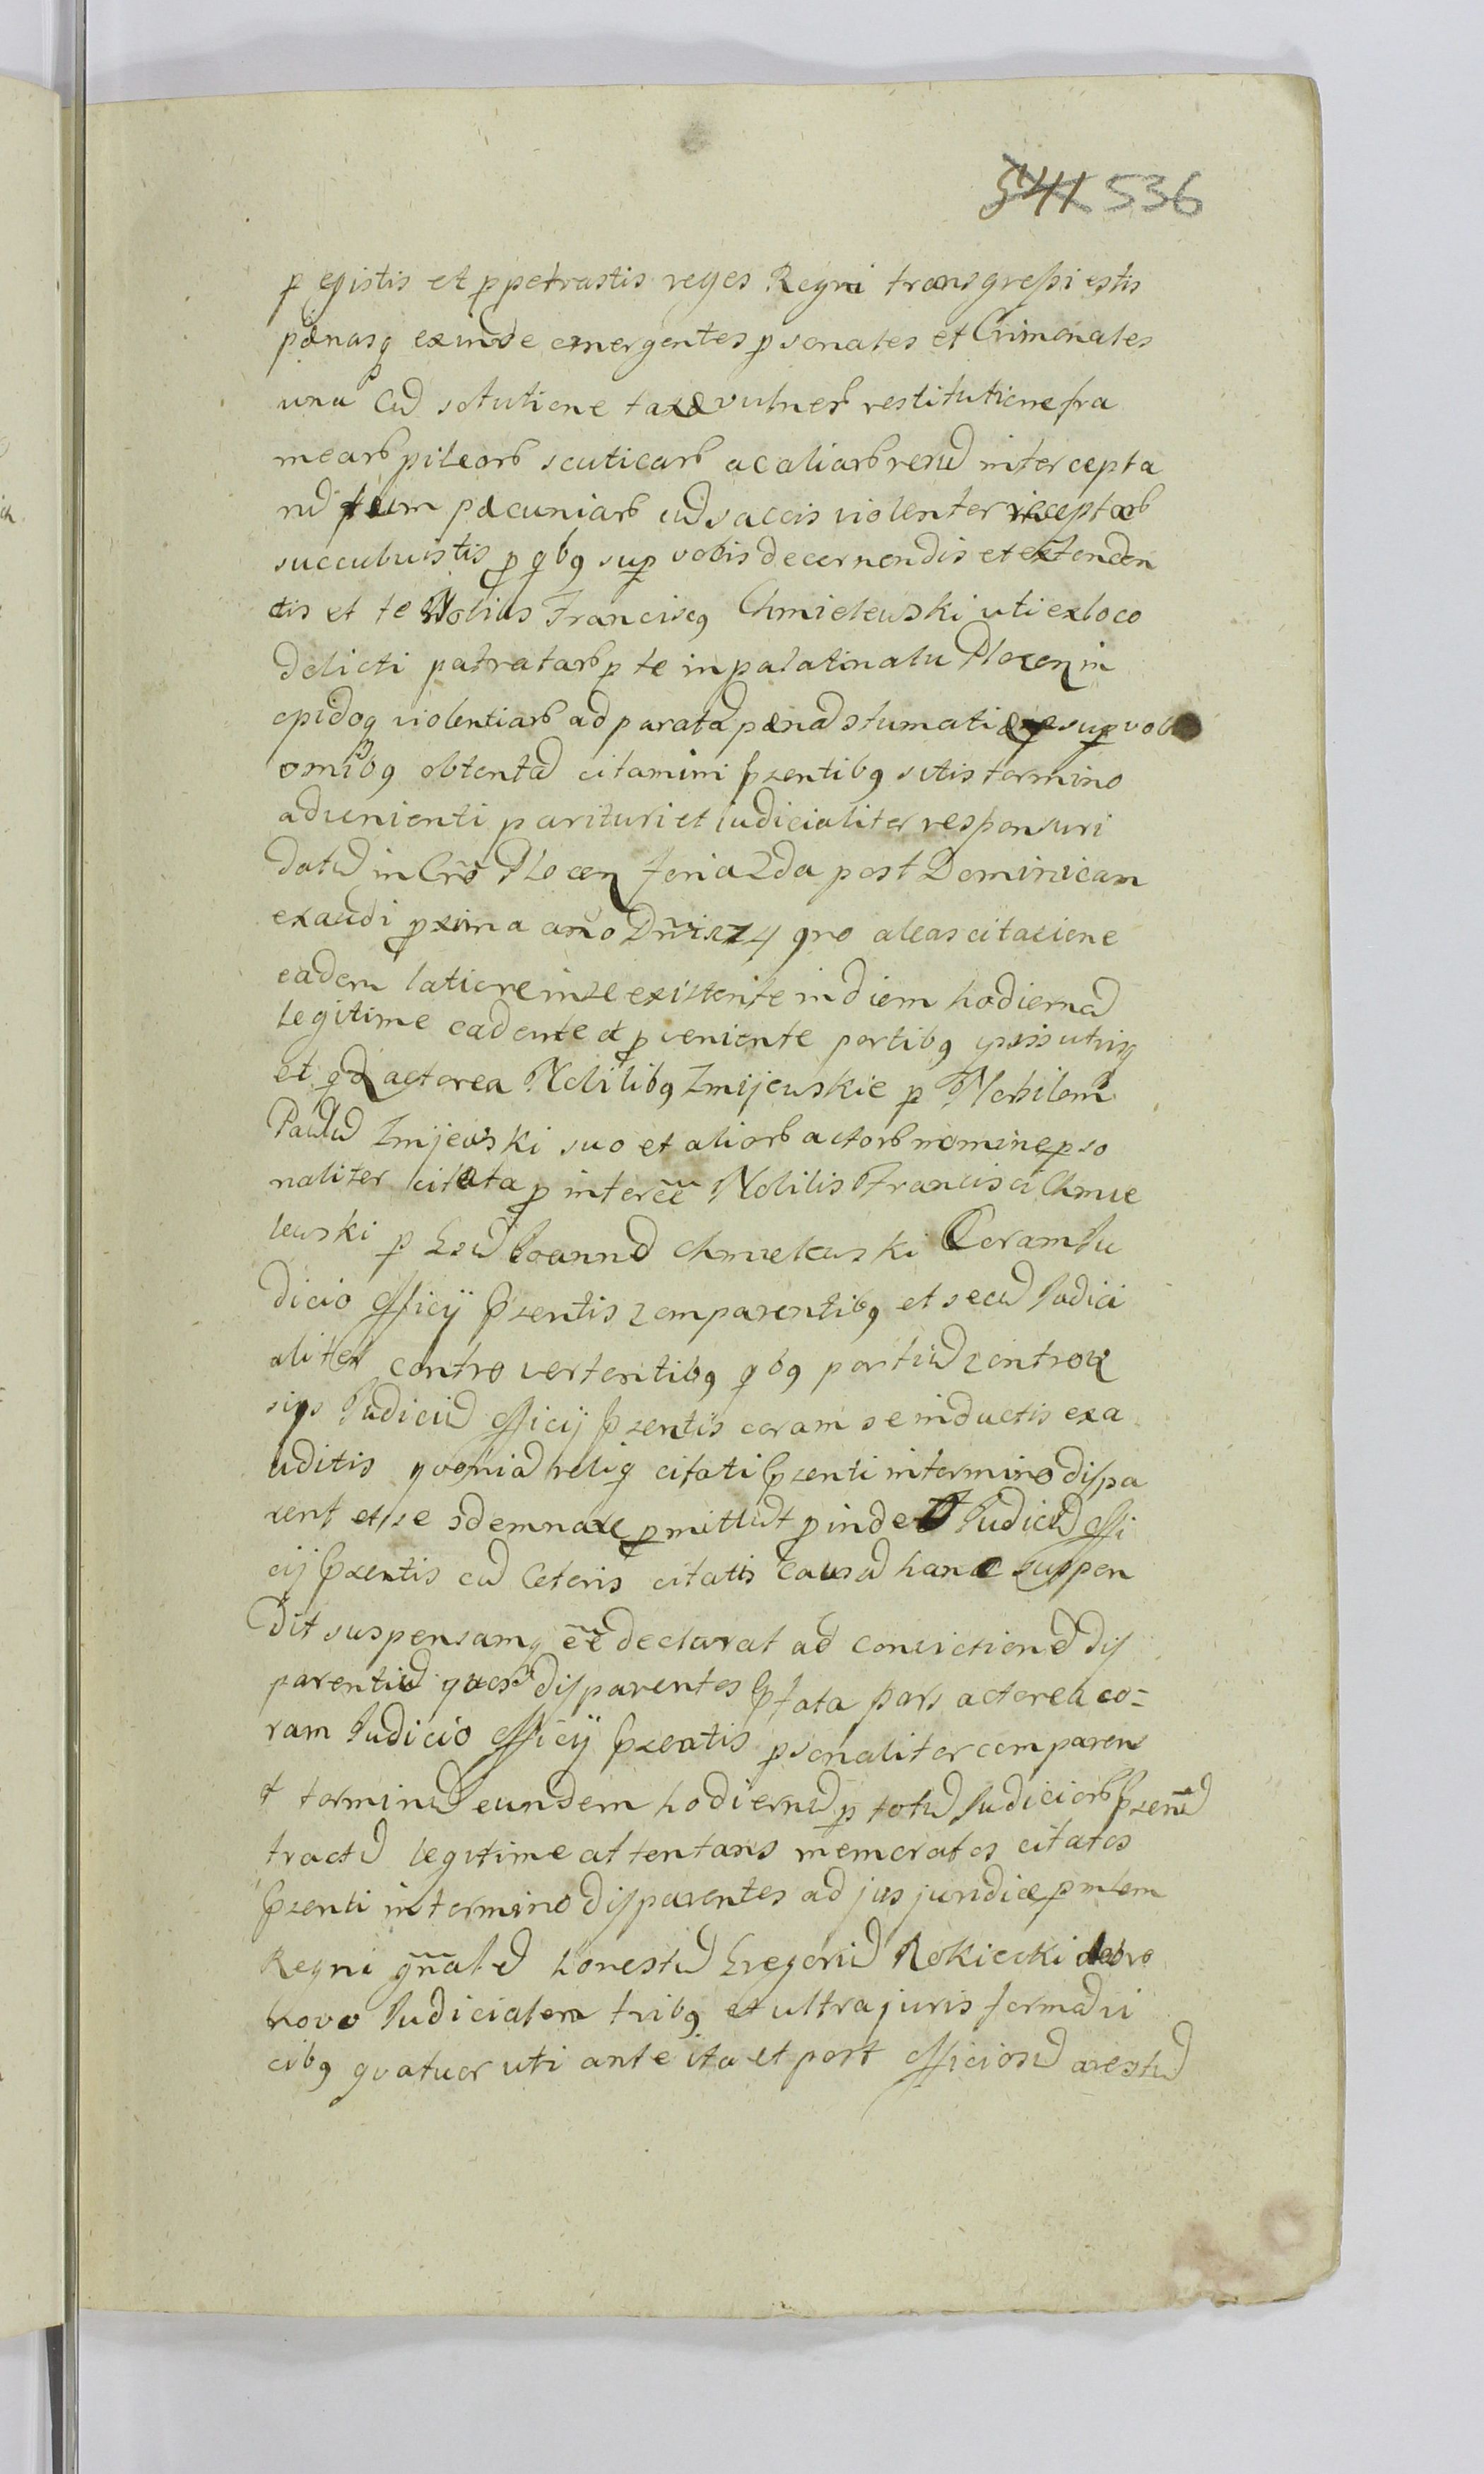 541 536
p egistis et ppetrastis reges Regni transgressi estis
pænasq exinde emergentes psonales et Criminales
una Cu solutione taxæ vulner restitutione fra
mearb pileorb scuticarb ac aliarb reru intercepta
ru tum pecuniarb cu saccis violenter receptarb
succubuistis p qbq sup vobis decernendis et extenden
dis et te Nobilis Franciscq Chmielewski uti ex loco
delicti patratarb p te in palatinatu Plocen in
opidoq violentiarb ad paratæ pænæ stumati sup vobis
omibq obtenta citamini pzentibq sitis termino
advenienti parituri et iudicialiter responsuri
datu in Cro Plocen feria 2da post Dominicam
exaudi pxima ano Dni 1714 qro aleas citatione
eadem latiore in se existente in diem hodierna
legitime cadente et pveniente partibq ipsis utrisq
et qd actorea Nobilibq Zmijewskie p Nobilem
Paulu Zmijewski suo et aliorb actorb nomine pso
naliter citata p interee Nobilis Francisci Chmie
lewski p Gsu Ioanne Chmielewski Coram Iu
dicio officij pzentis comparentibq et secu Iudici
aliter controvertentibq qbq partiu controver
sijs Iudiciu officij pzentis coram se inductis exa
uditis quonia reliq citati pzenti in termino dispa
rent et se odemnare pmittut pinde Iudiciu offi
cij pzentis cu Ceteris citatis causa hanc suspen
dit suspensamq ee declarat ad convictione dis
parentiu quos disparentes pfata pars actorea co=
ram Iudicio officij pzentis psonaliter comparens
et terminu eundem hodiernu p totu Iudiciorb pzentiu
tractu legitime attentans memoratos citatos
pzenti in termino disparentes ad jus juridice p mlem
Regni gnale honestu Gregoriu Rokiecki de
novo Iudicialem tribq et ultra juris forma vi
cibq quatuor uti ante ita et post officiosu arestu